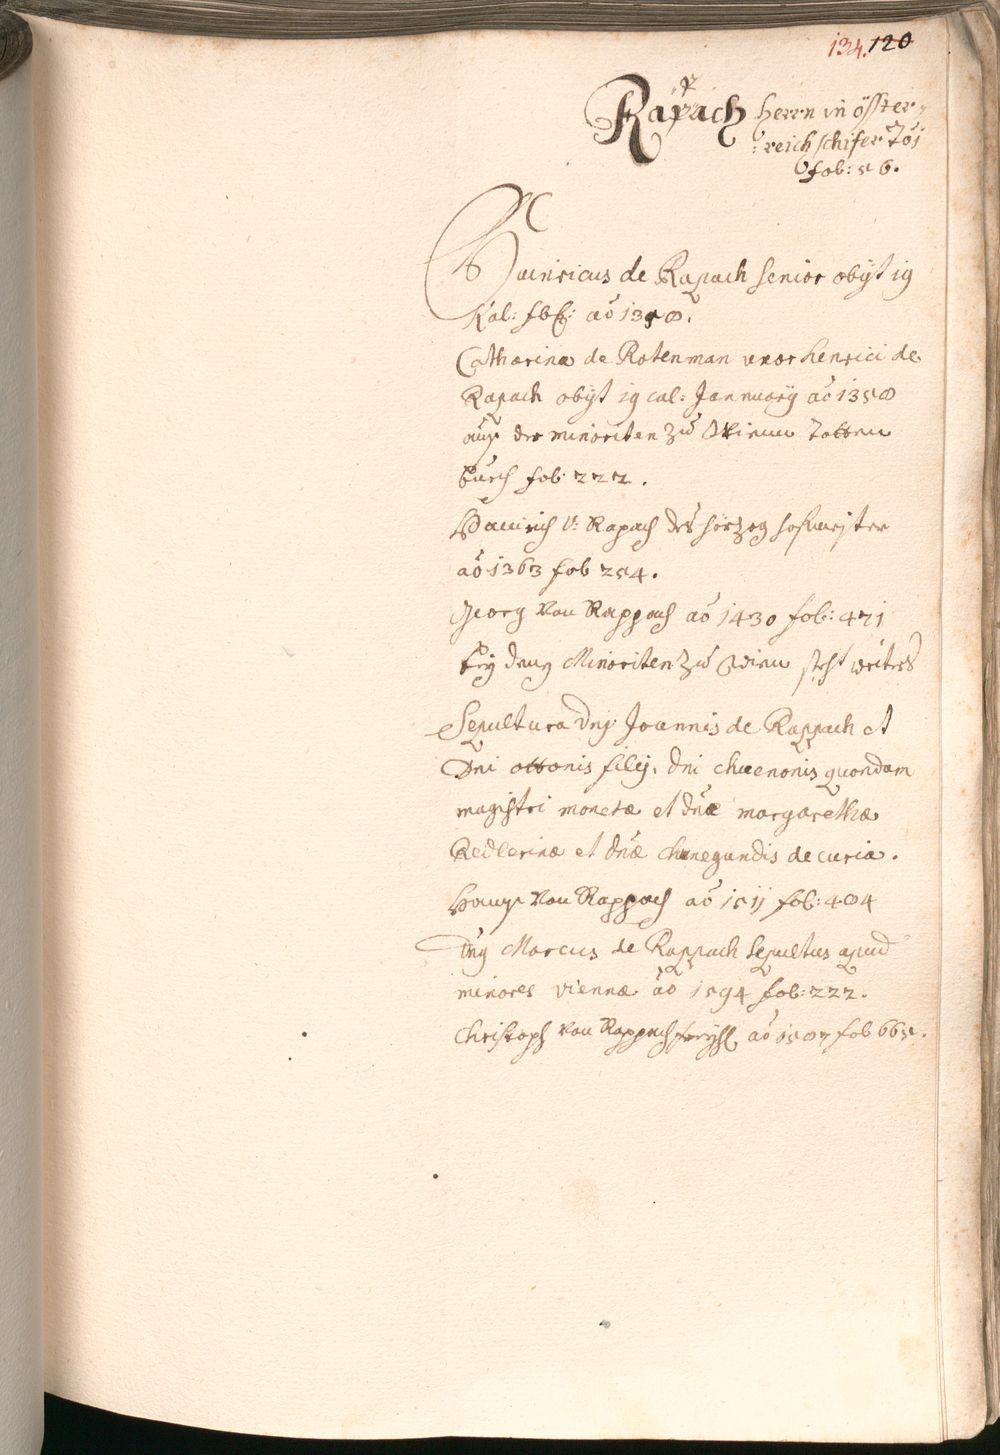 134. 120
Rapach Herrn in össter-
: reich schifer 701
fol: 56.
Hainricus de Rapach senior obijt 19
Kal: ao 1358.
Catharina de Rotenman uxor henrici de
Rapach obijt 19 cal: Jannuarij ao 1358
auß der minoriten zu Wienn Totten
buech fol: 222.
Hainrich v: Rapach des herzog hofmeister
ao 1363 fol 254.
Georg von Rappach ao 1430 fol: 471
bey denn Minoriten zu Wien steht weiters
Sepultura Dnj Joannis de Rappach et
Dni ottonis filij. dni chuenonis quondam
magistri monetæ et dnæ margarethæ
Redlerinæ et dnæ chunegundis de curia.
Hannß von Rappach ao 1511 fol: 484
Dns Marcus de Rappach sepultus apud
minores viennæ ao 1594 fol: 222.
Christoph von Rappach ao 1587 fol 665.